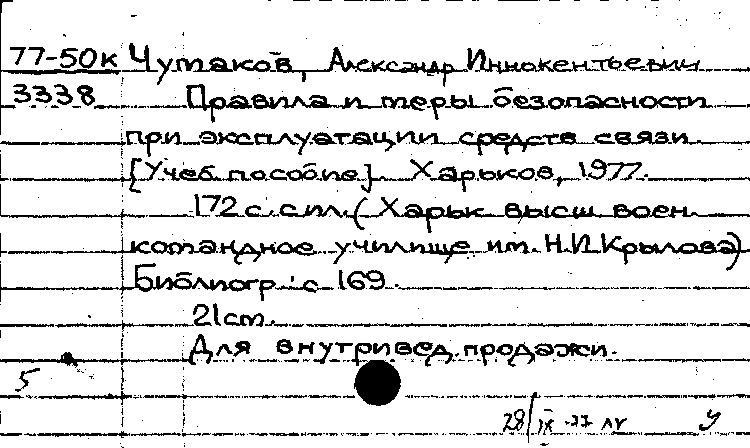 77-50к Чумаков, Александр Иннокентьевич
3338 Правила и меры безопасности
при эксплуатации средств связи.
[Учеб. пособие]. Харьков, 1977.
172 с. с ил. (Харьк. высш. воен.
командное училище им. Н.И. Крылова)
Библиогр.: с 169.
21 см.
Для внутривед. продажи.
5
28/IX-77 У